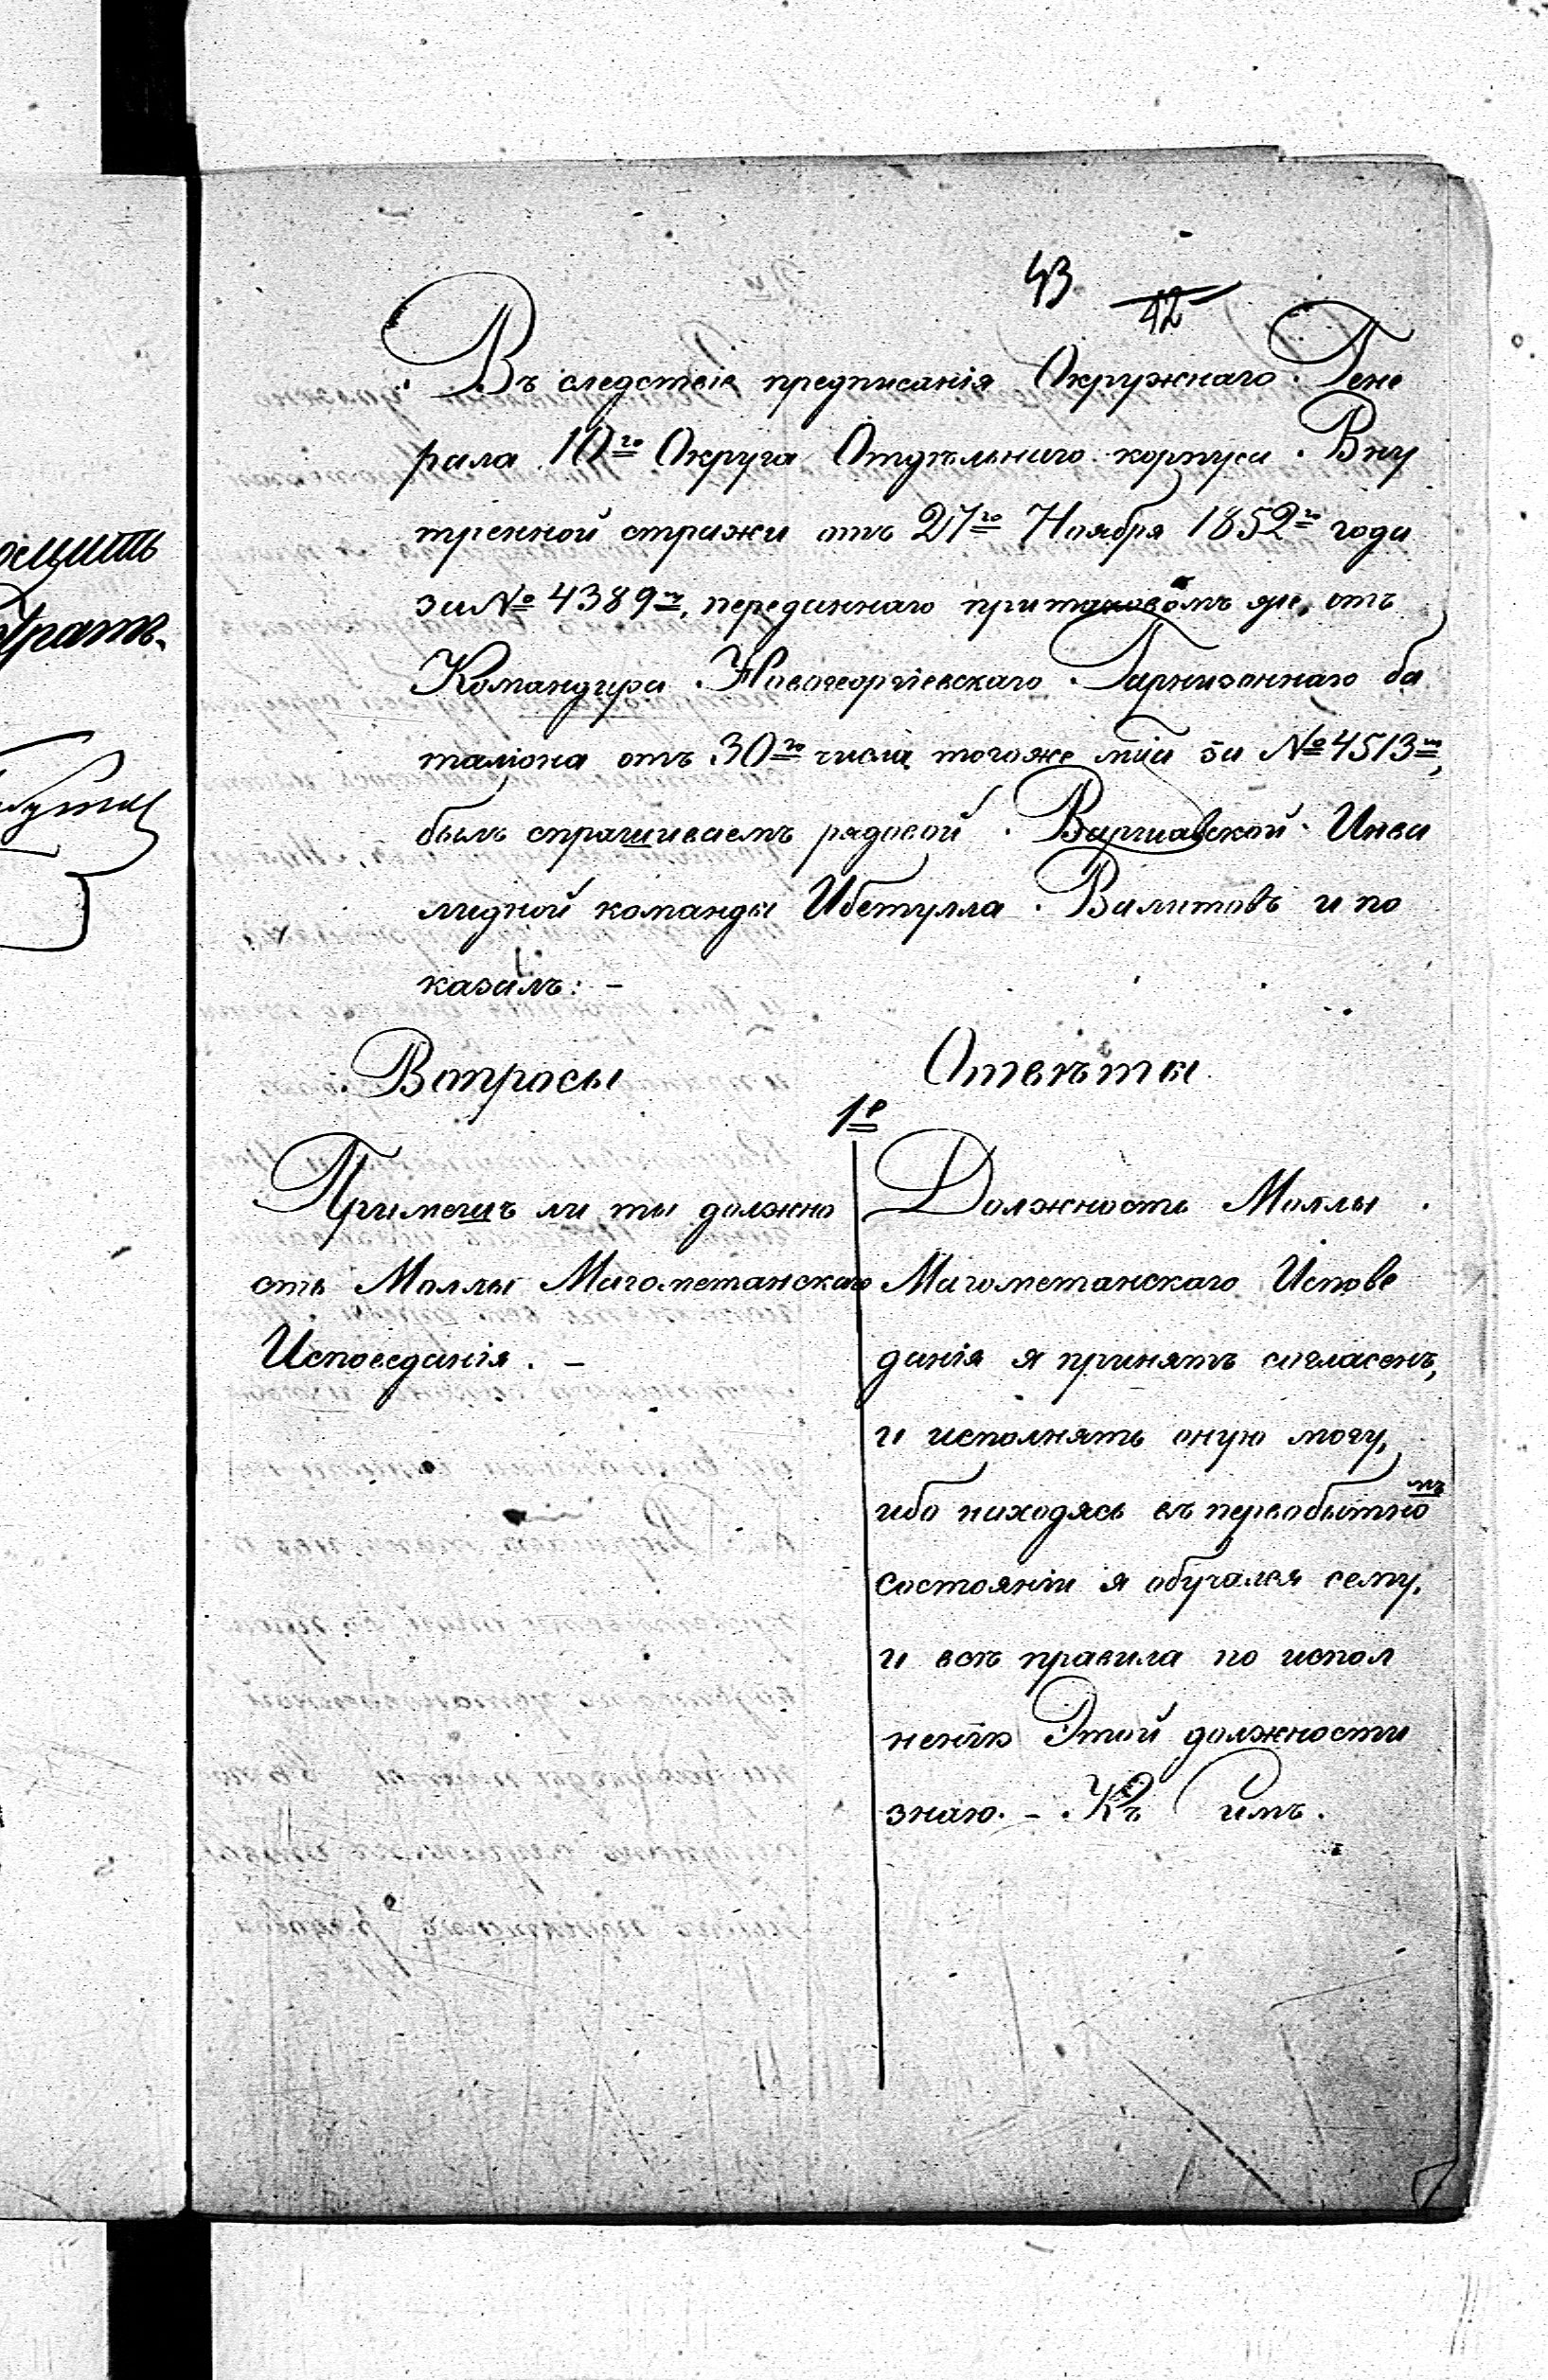 43
42
Въ следствіе предписанія Окружнаго Гене
рала 10го Округа Отдѣльнаго корпуса Вну
тренной стражи отъ 27го Ноября 1852го года
за № 4389м, переданнаго притаковомъ же, отъ
Командира Новогеоргіевскаго Гарнизоннаго ба
таліона отъ 30го числа тогоже мца за № 4513м,
былъ спрашиваемъ рядовой Варшавской Инва
лидной команды Ибетулла Валитовъ и по
казалъ: –
Вопросы
Отвѣты
1е
Примешъ ли ты должно
сть Моллы Магометанскаго
Исповеданія. –
Должность Моллы
Магометанскаго Испове
данія я принять согласенъ,
и исполнять оную могу,
ибо находясь въ первобытномъ
состояніи я обучался сему,
и всѣ правила по испол
ненію Этой должности
знаю. – Къ Симъ.